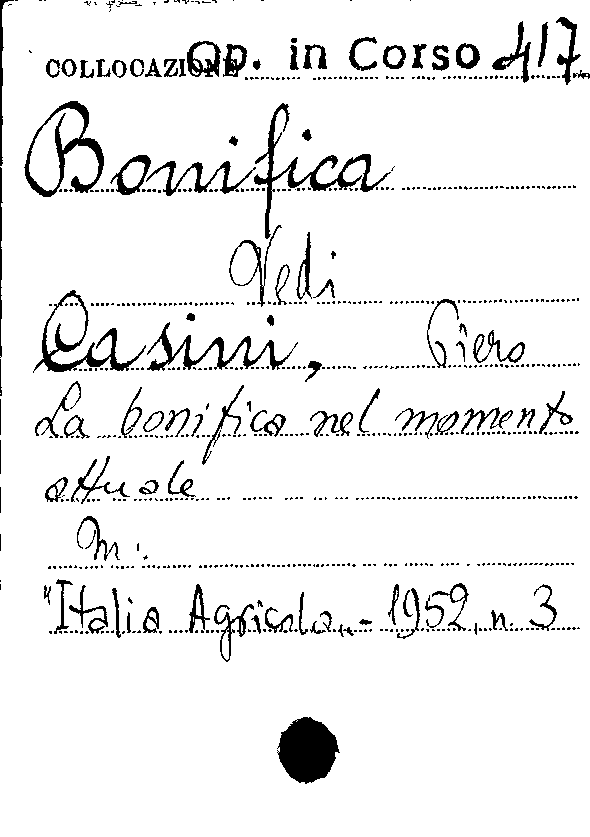 COLLOCAZIONE Op. in Corso 417
Bonifica
Vedi
Casini, Piero
La bonifica nel momento
attuale
In:
"Italia Agricola„- 1952, n. 3